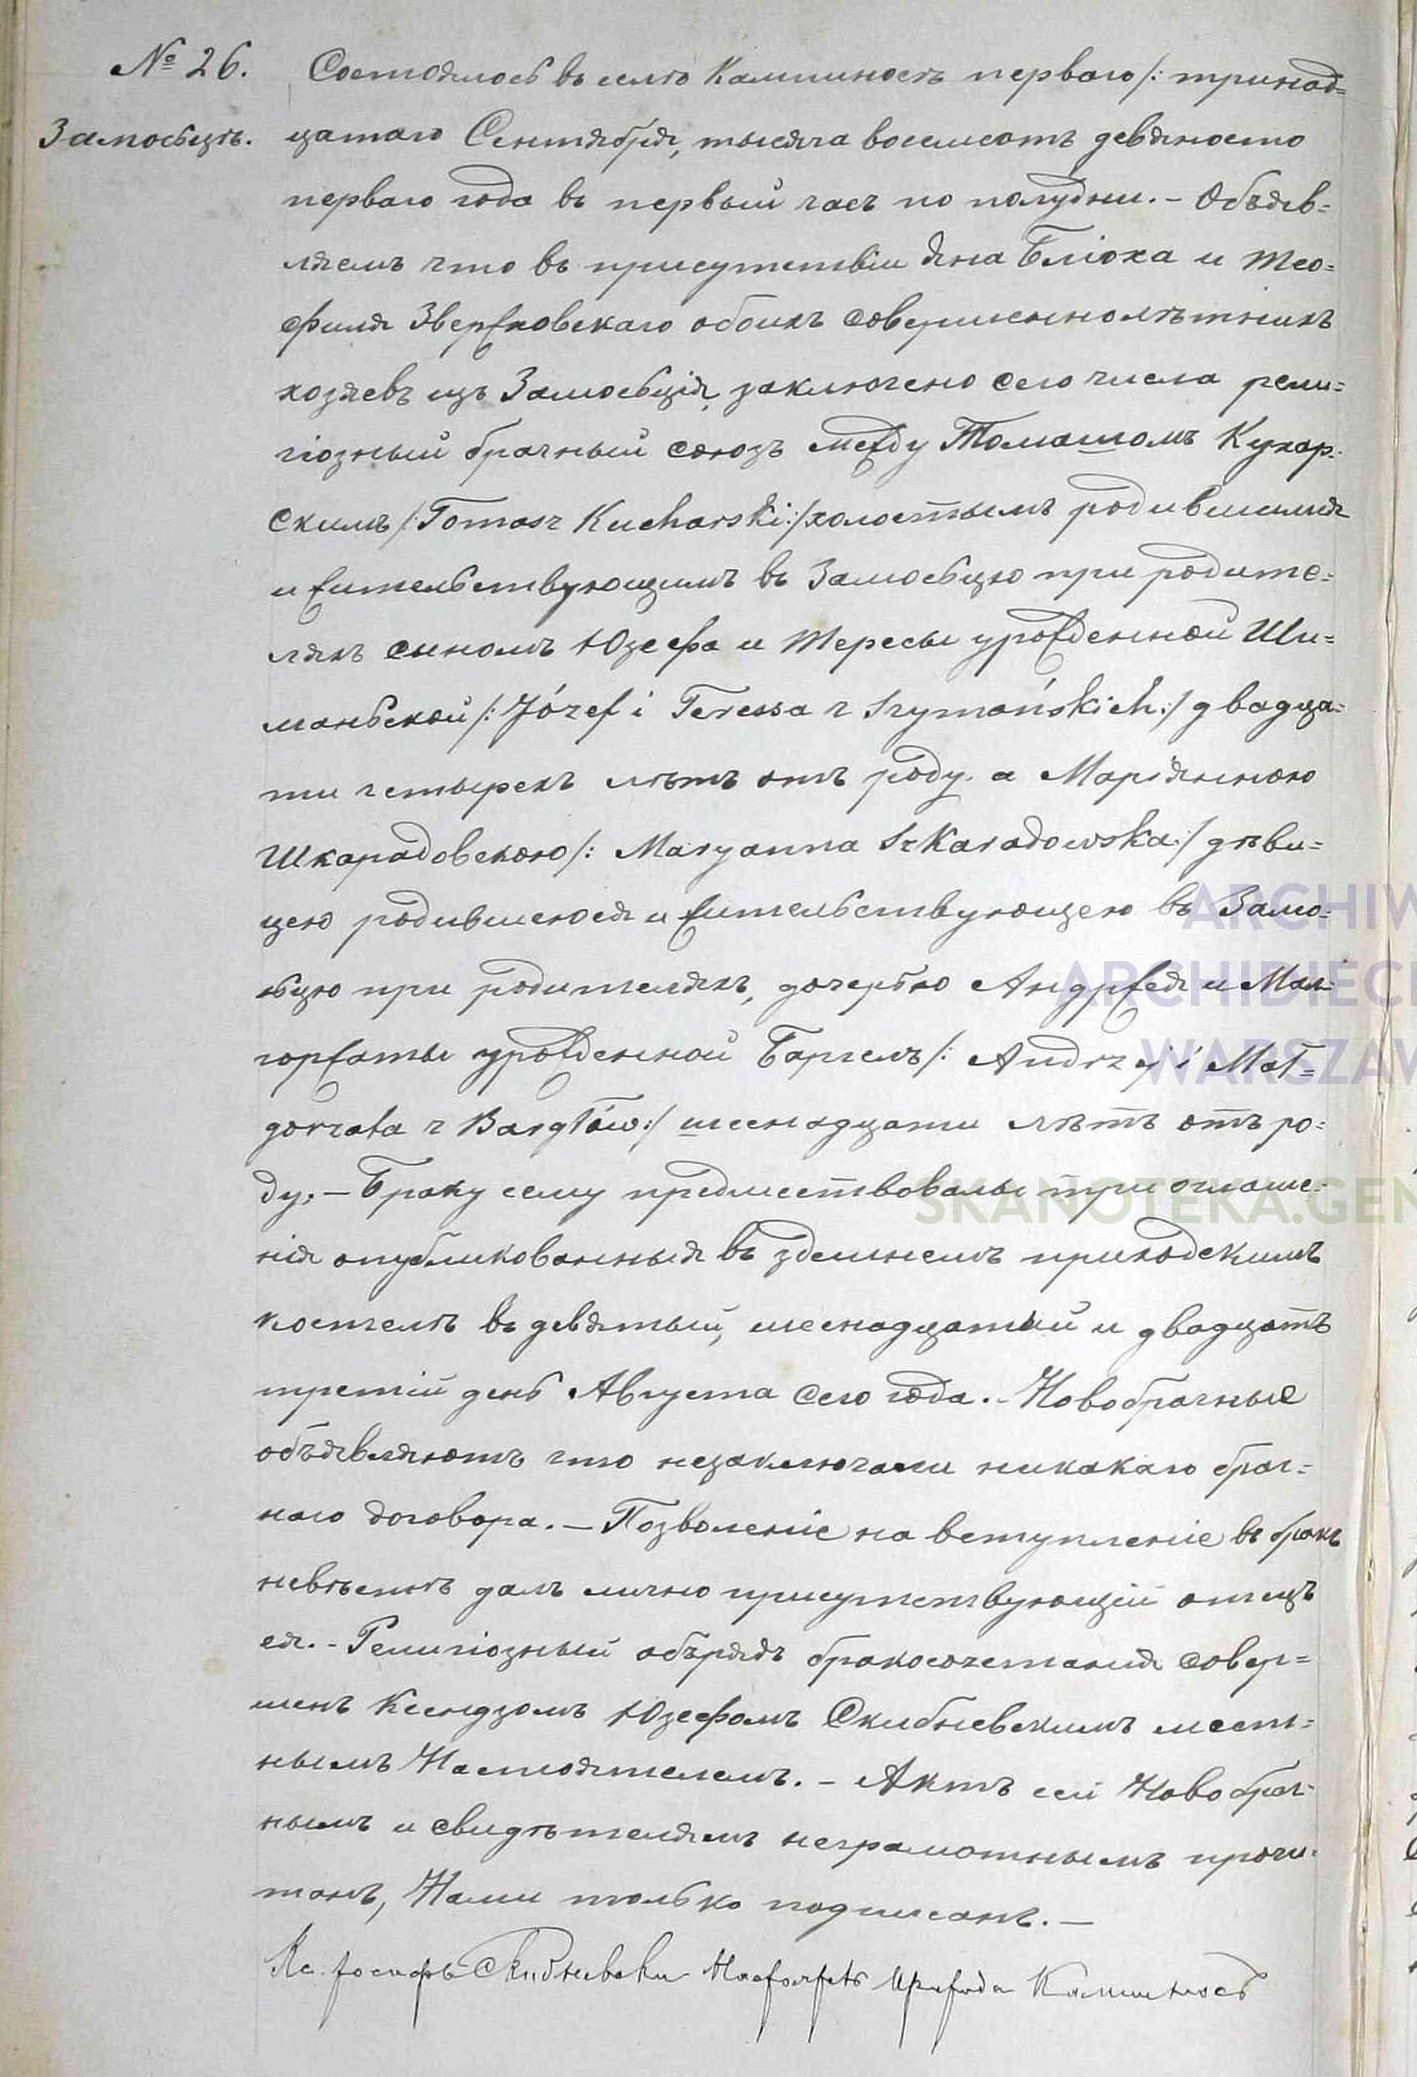 № 26. Состоялось въ селѣ Кампиносѣ перваго /: тринад=
Замосьцѣ. цатаго Сентября, тысяча восемсотъ девяносто
перваго года въ первый часъ по полудни. – Объяв=
ляемъ что въ присутствіи Яна Блюха и Тео=
филя Звержховскаго обоихъ совершеннолѣтнихъ
хозяевъ изъ Замосьція, заключено сего числа рели=
гіозный брачный союзъ между Томашомъ Кухар=
скимъ /: Tomasz Kucharski :/ холостымъ родившимся
и жительствующимъ въ Замосьцю при родите=
ляхъ сыномъ Юзефа и Тересы урожденной Ши=
маньской /: Józef i Teressa z Szymańskich :/ двадца=
ти четырехъ лѣтъ отъ роду. а Маріянною
Шкарадовскою /: Maryanna Szkaradowska :/ дѣви=
цею родившеюся и жительствующею въ Замо=
сьцю при родителяхъ, дочерью Андржея и Мал=
горжаты урожденной Баргелъ /: Andrzej i Mał=
gorzata z Bargłów :/ шеснадцати лѣтъ отъ ро=
ду; – Браку сему предшествовалы три оглаше=
нія опубликованныя въ здешнемъ приходскимъ
костелѣ въ девятый, шеснадцатый и двадцать
третій день Августа сего года. – Новобрачные
объявляютъ что незаключали никакаго брач=
наго договора. – Позволеніе на вступленіе въ бракъ
невѣстѣ далъ лично присутствующій отецъ
ея. – Религіозный обърядъ бракосочетанія совер=
шенъ Ксендзомъ Юзефомъ Скибневскимъ мест=
нымъ Настоятелемъ. – Актъ сей Новобрач=
нымъ и свидѣтелямъ неграмотнымъ прочи=
танъ, Нами только подписанъ. –
Кс. Іосифъ Скибневски Настоятель Прихода Кампиносъ
ARCHIW
ARCHIDIECE
WARSZAW
SKANOTEKA.GEN